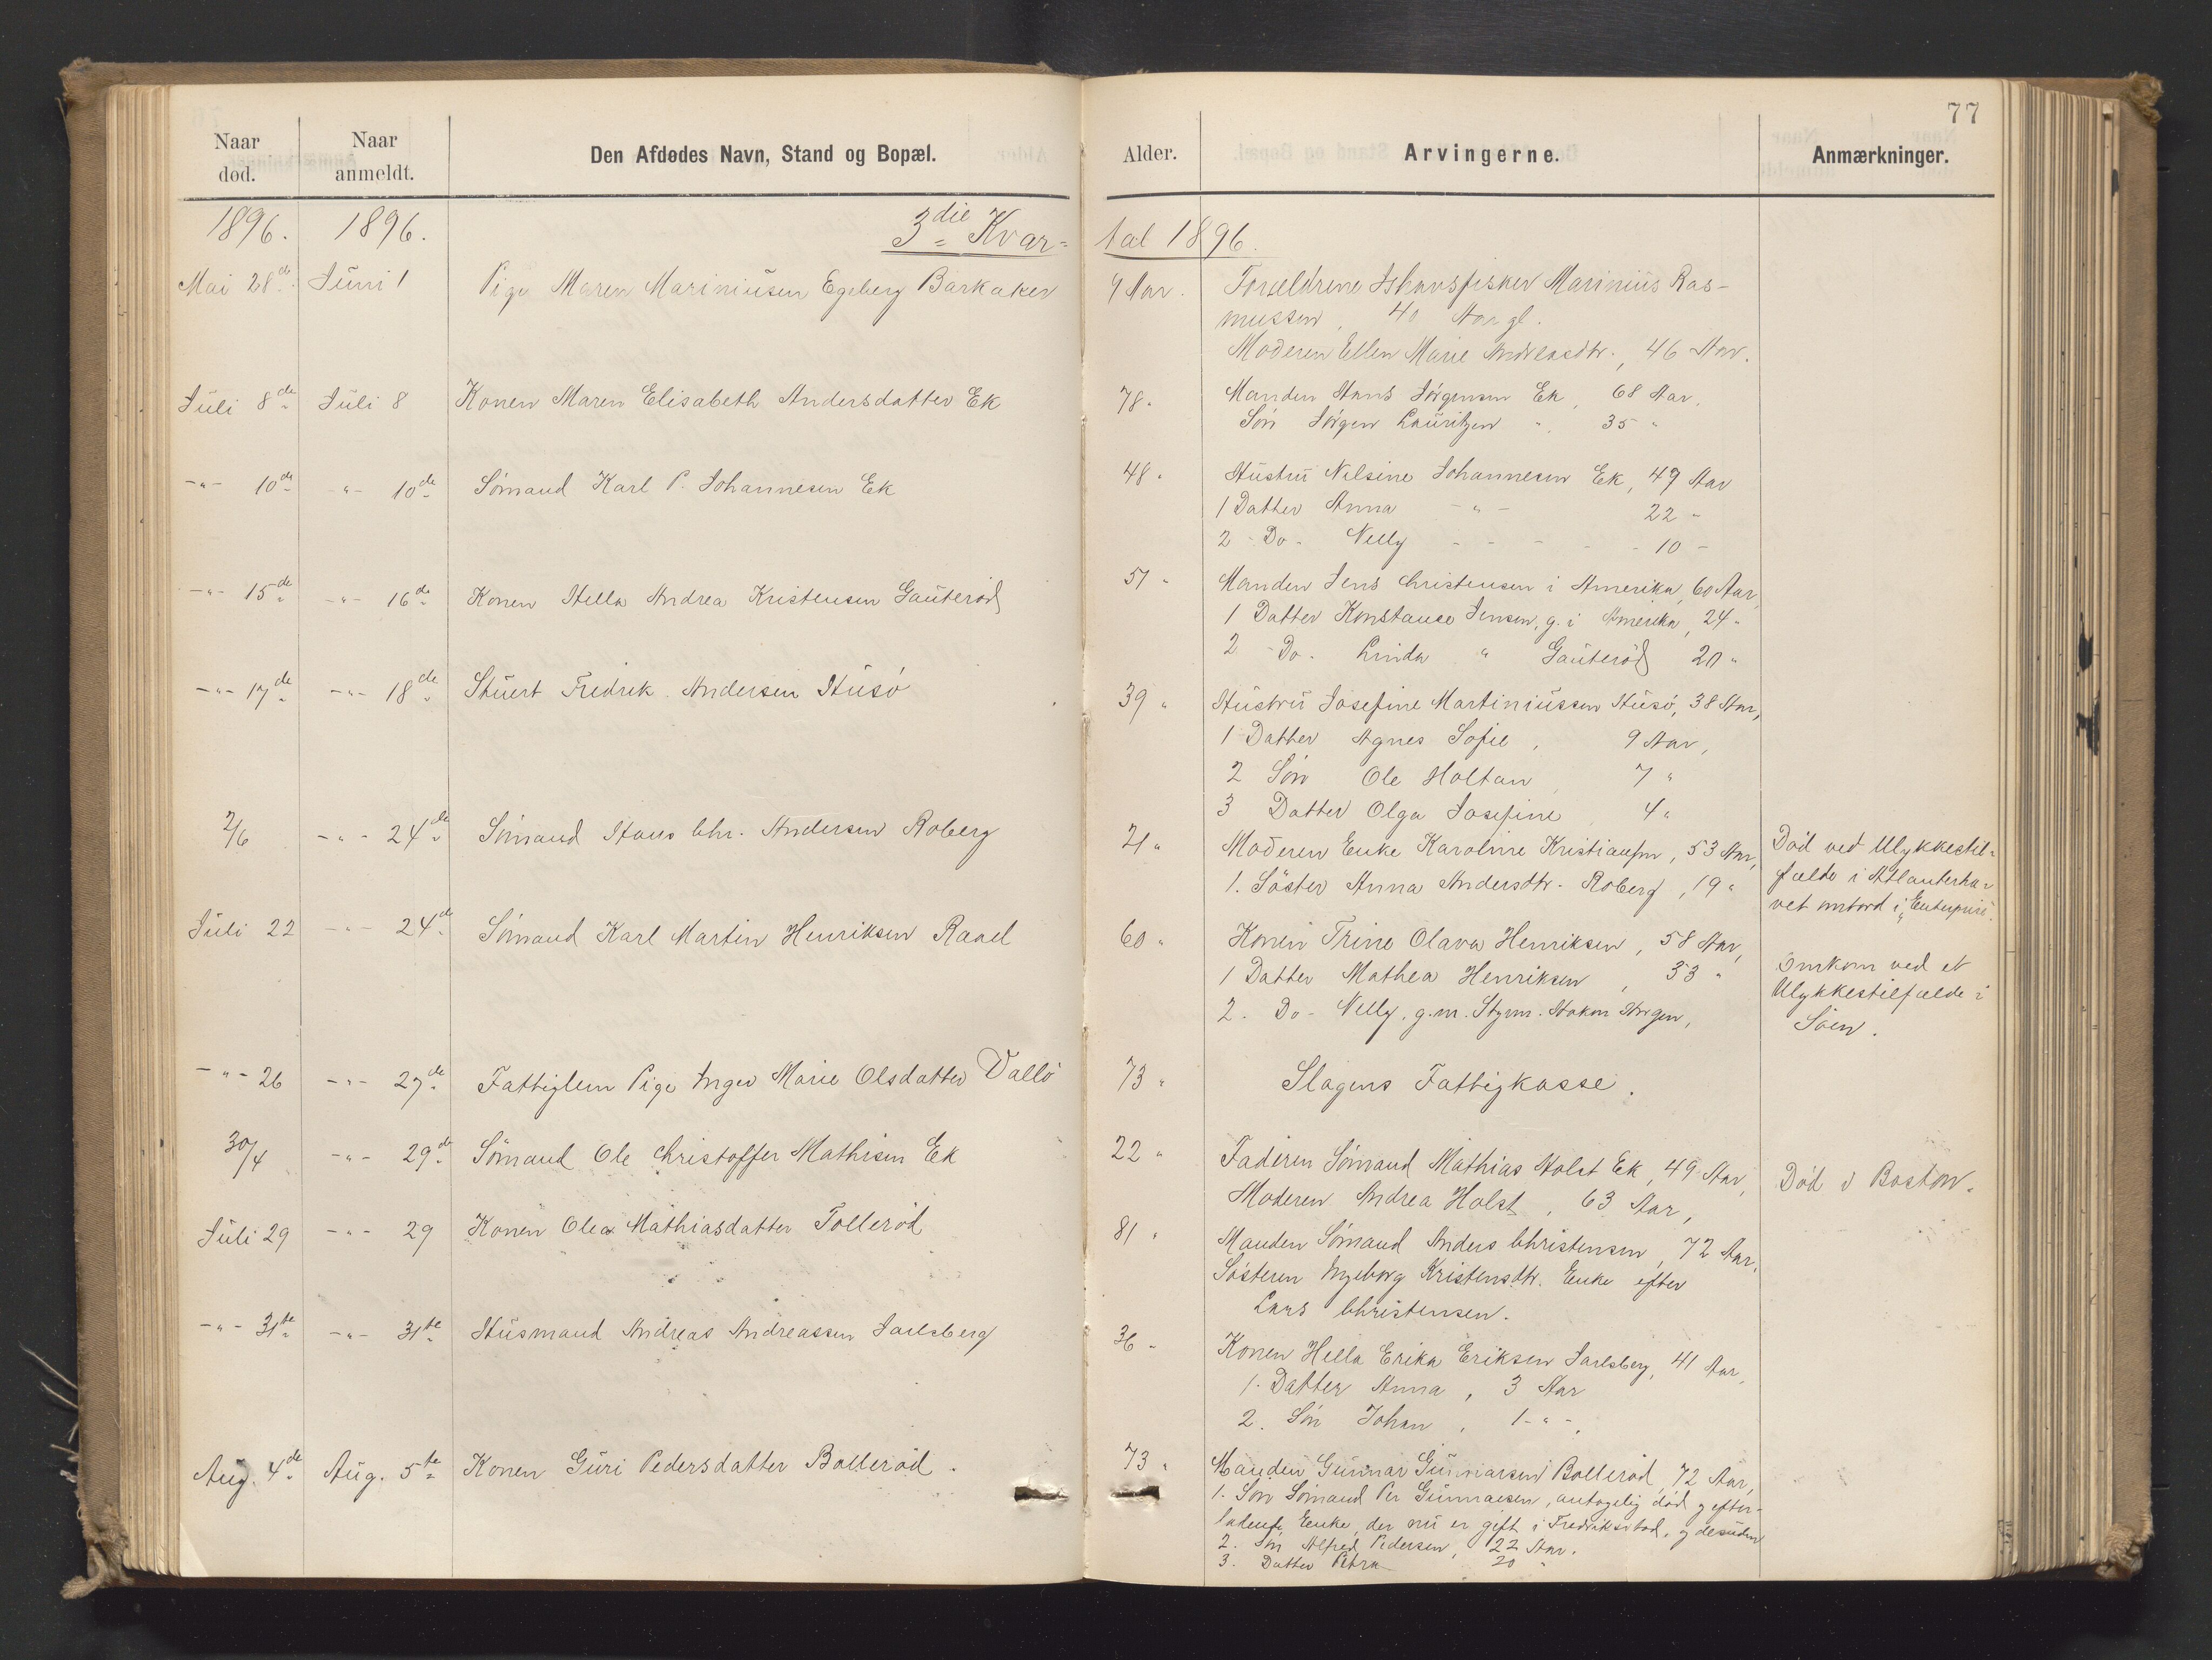 77
Naar død. Naar anmeldt. Den Afdødes Navn, Stand og Bopæl. Alder. Arvingerne. Anmærkninger.
1896. 1896. 3die Kvartal 1896.
Mai 28de Juni 1 Pige Maren Mariniusen Egeberg Barkaker 9 Aar. Forældrene Ishavsfisker Marinius Ras-
mussen, 40 Aar gl.
Moderen Ellen Marie Andreasdtr., 46 Aar.
Juli 8de Juli 8 Konen Maren Elisabeth Andersdatter Ek 78 " Manden Hans Jørgensen Ek, 68 Aar.
Søn Jørgen Lauritzen " 35 "
-"- 10de -"- 10de Sømand Karl P. Johannesen Ek 48 " Hustru Nilsine Johannesen Ek, 49 Aar
1 Datter Anna -"- 22 "
2 - Do - Nelly - - - - 10 -
-"- 15de -"- 16de Konen Hella Andrea Kristensen Gauterød 57 " Manden Jens Christensen i Amerika, 60 Aar,
1 Datter Konstance Jensen, g. i Amerika, 24 "
2 - Do. Linda " Gauterød 20 "
-"- 17de -"- 18de Stuert Fredrik Andersen Husø 39 " Hustru Josefine Martiniussen Husø, 38 Aar,
1 Datter Agnes Sofie, 9 Aar,
2 Søn Ole Holtan, 7 "
3 Datter Olga Josefine, 4 "
2/6 -"- 24de Sømand Hans Chr. Andersen Roberg 21 " Moderen Enke Karoline Kristiansen, 53 Aar, Død ved Ulykkestil-
1. Søster Anna Andersdtr. Roberg, 19 " fælde i Atlanterha-
vet ombord i "Enterprise".
Juli 22 -"- 24de Sømand Karl Martin Henriksen Raael 60 " Konen Trine Olava Henriksen, 58 Aar,
1 Datter Mathea Henriksen, 33 " Omkom ved et
Ulykkestilfælde i
2. Do - Nelly, g. m. Styrm. Hakon Horgen, Søen.
-"- 26 -"- 27de Fattiglem Pige Inger Marie Olsdatter Vallø 73 " Slagens Fattigkasse.
30/4 -"- 29de Sømand Ole Christoffer Mathisen Ek 22 " Faderen Sømand Mathias Holst Ek, 49 Aar, Død i Boston.
Moderen Andrea Holst, 63 Aar,
Juli 29 -"- 29 Konen Olea Mathiasdatter Tollerød 81 " Manden Sømand Anders Christensen, 72 Aar.
Søsteren Ingeborg Kristensdtr. Enke efter
Lars Christensen.
-"- 31te -"- 31te Husmand Andreas Andreassen Jarlsberg 36 " Konen Hella Erika Eriksen Jarlsberg, 41 Aar,
1. Datter Anna, 3 Aar
2. Søn Johan, 1 -"-
Aug. 4de Aug. 5te Konen Guri Pedersdatter Bollerød. 73 " Manden Gunnar Gunnarsen Bollerød, 72 Aar,
1. Søn Sømand Per Gunnarsen, antagelig død og efter-
ladende Enke, der nu er gift i Fredriksstad, og desuden
2. Søn Alfred Pedersen, 22 Aar.
3. Datter Petra 20 "